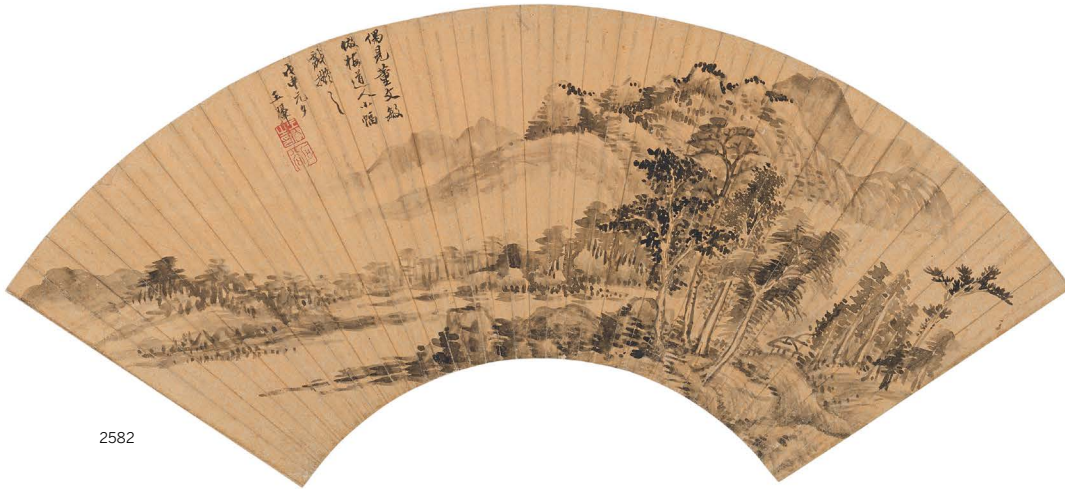 偶見董文敏
倣梅道人小幅
戲擬之
戊申元夕
王翬
2582